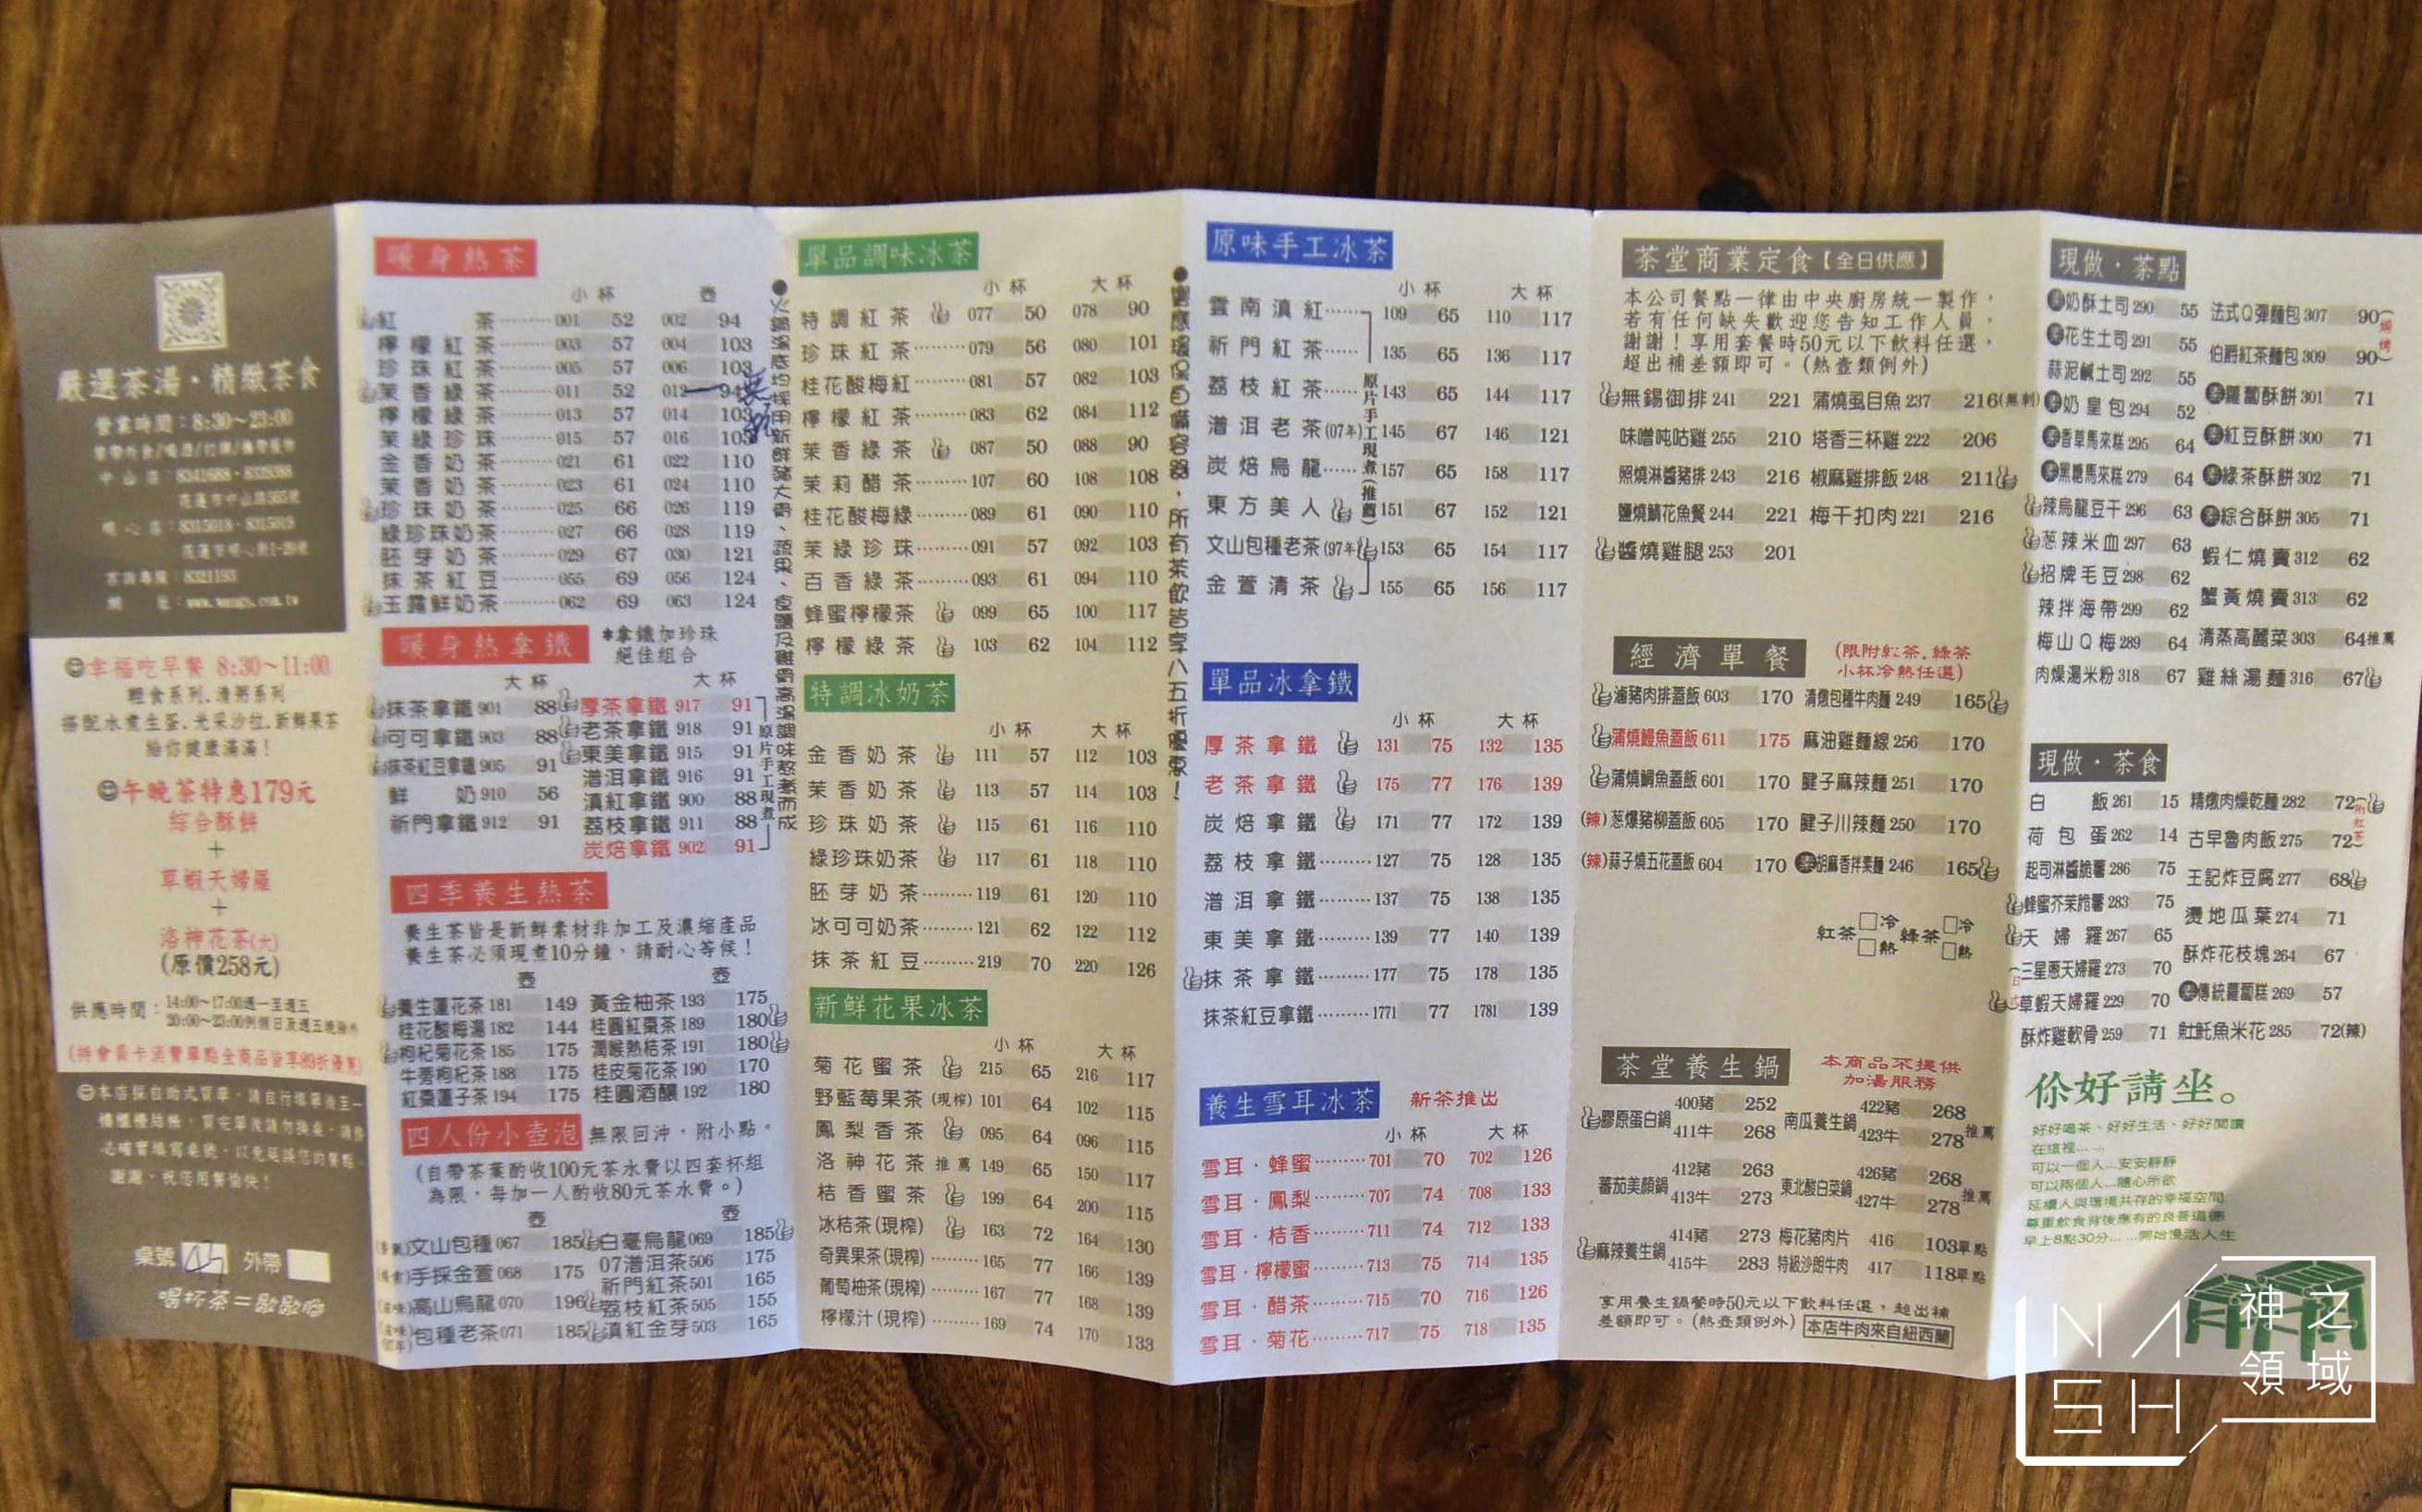 嚴選茶湯・精緻茶食
營業時間：8:30～23:00
中山店：8341688・8328388
花蓮市中山路565號
明心店：8315018・8315019
花蓮市明心街1-29號
客訴專線：8321193
幸福吃早餐 8:30～11:00
輕食系列、清粥系列
搭配水煮生蛋、光采沙拉、新鮮果茶
給你健康滿滿！
午晚茶特惠179元
綜合酥餅
+
草蝦天婦羅
+
洛神花茶(大)
(原價258元)
供應時間：14:00～17:00週一至週五
20:00～23:00例假日及週五晚除外
(持會員卡消費單點全商品皆享89折優惠)
桌號 外帶
喝杯茶＝歇歇腳
暖身熱茶
小杯 壺
紅茶 001 52 002 94
檸檬紅茶 003 57 004 103
珍珠紅茶 005 57 006 103
茉香綠茶 011 52 012 94
檸檬綠茶 013 57 014 103
茉綠珍珠 015 57 016 103
金香奶茶 021 61 022 110
茉香奶茶 023 61 024 110
珍珠奶茶 025 66 026 119
綠珍珠奶茶 027 66 028 119
胚芽奶茶 029 67 030 121
抹茶紅豆 055 69 056 124
玉露鮮奶茶 062 69 063 124
暖身熱拿鐵 *拿鐵加珍珠
絕佳組合
大杯 大杯
抹茶拿鐵 901 88 厚茶拿鐵 917 91
可可拿鐵 903 88 老茶拿鐵 918 91
抹茶紅豆拿鐵 905 91 東美拿鐵 915 91
普洱拿鐵 916 91
鮮奶 910 56 滇紅拿鐵 900 88
祈門拿鐵 912 91 荔枝拿鐵 911 88
炭焙拿鐵 902 91
原片手工現煮
四季養生熱茶
養生茶皆是新鮮素材非加工及濃縮產品
養生茶必須現煮10分鐘，請耐心等候！
壺 壺
養生蓮花茶 181 149 黃金柚茶 193 175
桂花酸梅湯 182 144 桂圓紅棗茶 189 180
枸杞菊花茶 185 175 潤喉熱桔茶 191 180
牛蒡枸杞茶 188 175 桂皮菊花茶 190 170
紅棗蓮子茶 194 175 桂圓酒釀 192 180
四人份小壺泡 無限回沖，附小點。
(自帶茶葉酌收100元茶水費以四套杯組
為限，每加一人酌收80元茶水費。)
壺 壺
文山包種 067 185 白毫烏龍 069 185
手採金萱 068 175 07普洱茶 506 175
祈門紅茶 501 165
高山烏龍 070 196 荔枝紅茶 505 155
包種老茶 071 185 滇紅金芽 503 165
●火鍋湯底均採用新鮮豬大骨、蔬果、食鹽及雞骨高湯調味熬煮而成
單品調味冰茶
小杯 大杯
特調紅茶 077 50 078 90
珍珠紅茶 079 56 080 101
桂花酸梅紅 081 57 082 103
檸檬紅茶 083 62 084 112
茉香綠茶 087 50 088 90
茉莉醋茶 107 60 108 108
桂花酸梅綠 089 61 090 110
茉綠珍珠 091 57 092 103
百香綠茶 093 61 094 110
蜂蜜檸檬茶 099 65 100 117
檸檬綠茶 103 62 104 112
特調冰奶茶
小杯 大杯
金香奶茶 111 57 112 103
茉香奶茶 113 57 114 103
珍珠奶茶 115 61 116 110
綠珍珠奶茶 117 61 118 110
胚芽奶茶 119 61 120 110
冰可可奶茶 121 62 122 112
抹茶紅豆 219 70 220 126
新鮮花果冰茶
小杯 大杯
菊花蜜茶 215 65 216 117
野藍莓果茶(現榨) 101 64 102 115
鳳梨香茶 095 64 096 115
洛神花茶 推薦 149 65 150 117
桔香蜜茶 199 64 200 115
冰桔茶(現榨) 163 72 164 130
奇異果茶(現榨) 165 77 166 139
葡萄柚茶(現榨) 167 77 168 139
檸檬汁(現榨) 169 74 170 133
●響應環保自備容器，所有茶飲皆享八五折優惠！
原味手工冰茶
小杯 大杯
雲南滇紅 109 65 110 117
祈門紅茶 135 65 136 117
荔枝紅茶 143 65 144 117
普洱老茶(07年) 145 67 146 121
炭焙烏龍 157 65 158 117
東方美人 151 67 152 121
文山包種老茶(97年) 153 65 154 117
金萱清茶 155 65 156 117
原片手工現煮(推薦)
單品冰拿鐵
小杯 大杯
厚茶拿鐵 131 75 132 135
老茶拿鐵 175 77 176 139
炭焙拿鐵 171 77 172 139
荔枝拿鐵 127 75 128 135
普洱拿鐵 137 75 138 135
東美拿鐵 139 77 140 139
抹茶拿鐵 177 75 178 135
抹茶紅豆拿鐵 1771 77 1781 139
養生雪耳冰茶 新茶推出
小杯 大杯
雪耳・蜂蜜 701 70 702 126
雪耳・鳳梨 707 74 708 133
雪耳・桔香 711 74 712 133
雪耳・檸檬蜜 713 75 714 135
雪耳・醋茶 715 70 716 126
雪耳・菊花 717 75 718 135
茶堂商業定食【全日供應】
本公司餐點一律由中央廚房統一製作，
若有任何缺失歡迎您告知工作人員，
謝謝！享用套餐時50元以下飲料任選，
超出補差額即可。(熱壺類例外)
無錫御排 241 221 蒲燒虱目魚 237 216(無刺)
味噌吨咕雞 255 210 塔香三杯雞 222 206
照燒淋醬豬排 243 216 椒麻雞排飯 248 211
鹽燒鯖花魚餐 244 221 梅干扣肉 221 216
醬燒雞腿 253 201
經濟單餐 (限附紅茶.綠茶
小杯冷熱任選)
滷豬肉排蓋飯 603 170 清燉包種牛肉麵 249 165
蒲燒鰻魚蓋飯 611 175 麻油雞麵線 256 170
蒲燒鯛魚蓋飯 601 170 腱子麻辣麵 251 170
(辣)蔥爆豬柳蓋飯 605 170 腱子川辣麵 250 170
(辣)蒜子燒五花蓋飯 604 170 素胡麻香拌素麵 246 165
紅茶 □冷 □熱 綠茶 □冷 □熱
茶堂養生鍋 本商品不提供
加湯服務
膠原蛋白鍋 400豬 252 南瓜養生鍋 422豬 268
411牛 268 423牛 278 推薦
蕃茄美顏鍋 412豬 263 東北酸白菜鍋 426豬 268
413牛 273 427牛 278 推薦
麻辣養生鍋 414豬 273 梅花豬肉片 416 103單點
415牛 283 特級沙朗牛肉 417 118單點
享用養生鍋餐時50元以下飲料任選，超出補
差額即可。(熱壺類例外) 本店牛肉來自紐西蘭
現做・茶點
素奶酥土司 290 55 法式Q彈麵包 307 90
素花生土司 291 55 伯爵紅茶麵包 309 90
蒜泥鹹土司 292 55
素奶皇包 294 52 素蘿蔔酥餅 301 71
素香草馬來糕 295 64 素紅豆酥餅 300 71
素黑糖馬來糕 279 64 素綠茶酥餅 302 71
辣烏龍豆干 296 63 素綜合酥餅 305 71
蔥辣米血 297 63 蝦仁燒賣 312 62
招牌毛豆 298 62 蟹黃燒賣 313 62
辣拌海帶 299 62
梅山Q梅 289 64 清蒸高麗菜 303 64推薦
肉燥湯米粉 318 67 雞絲湯麵 316 67
現做・茶食
白飯 261 15 精燉肉燥乾麵 282 72
荷包蛋 262 14 古早魯肉飯 275 72
(附紅茶)
起司淋醬脆薯 286 75 王記炸豆腐 277 68
蜂蜜芥茉脆薯 283 75 燙地瓜葉 274 71
天婦羅 267 65
三星蔥天婦羅 273 70 酥炸花枝塊 264 67
草蝦天婦羅 229 70 素傳統蘿蔔糕 269 57
酥炸雞軟骨 259 71 魟魠魚米花 285 72(辣)
你好請坐。
好好喝茶、好好生活、好好閱讀
在這裡……
可以一個人…安安靜靜
可以兩個人…隨心所欲
延續人與環境共存的幸福空間
尊重飲食背後應有的良善道德
早上8點30分……開始慢活人生
NASH
神之
領域